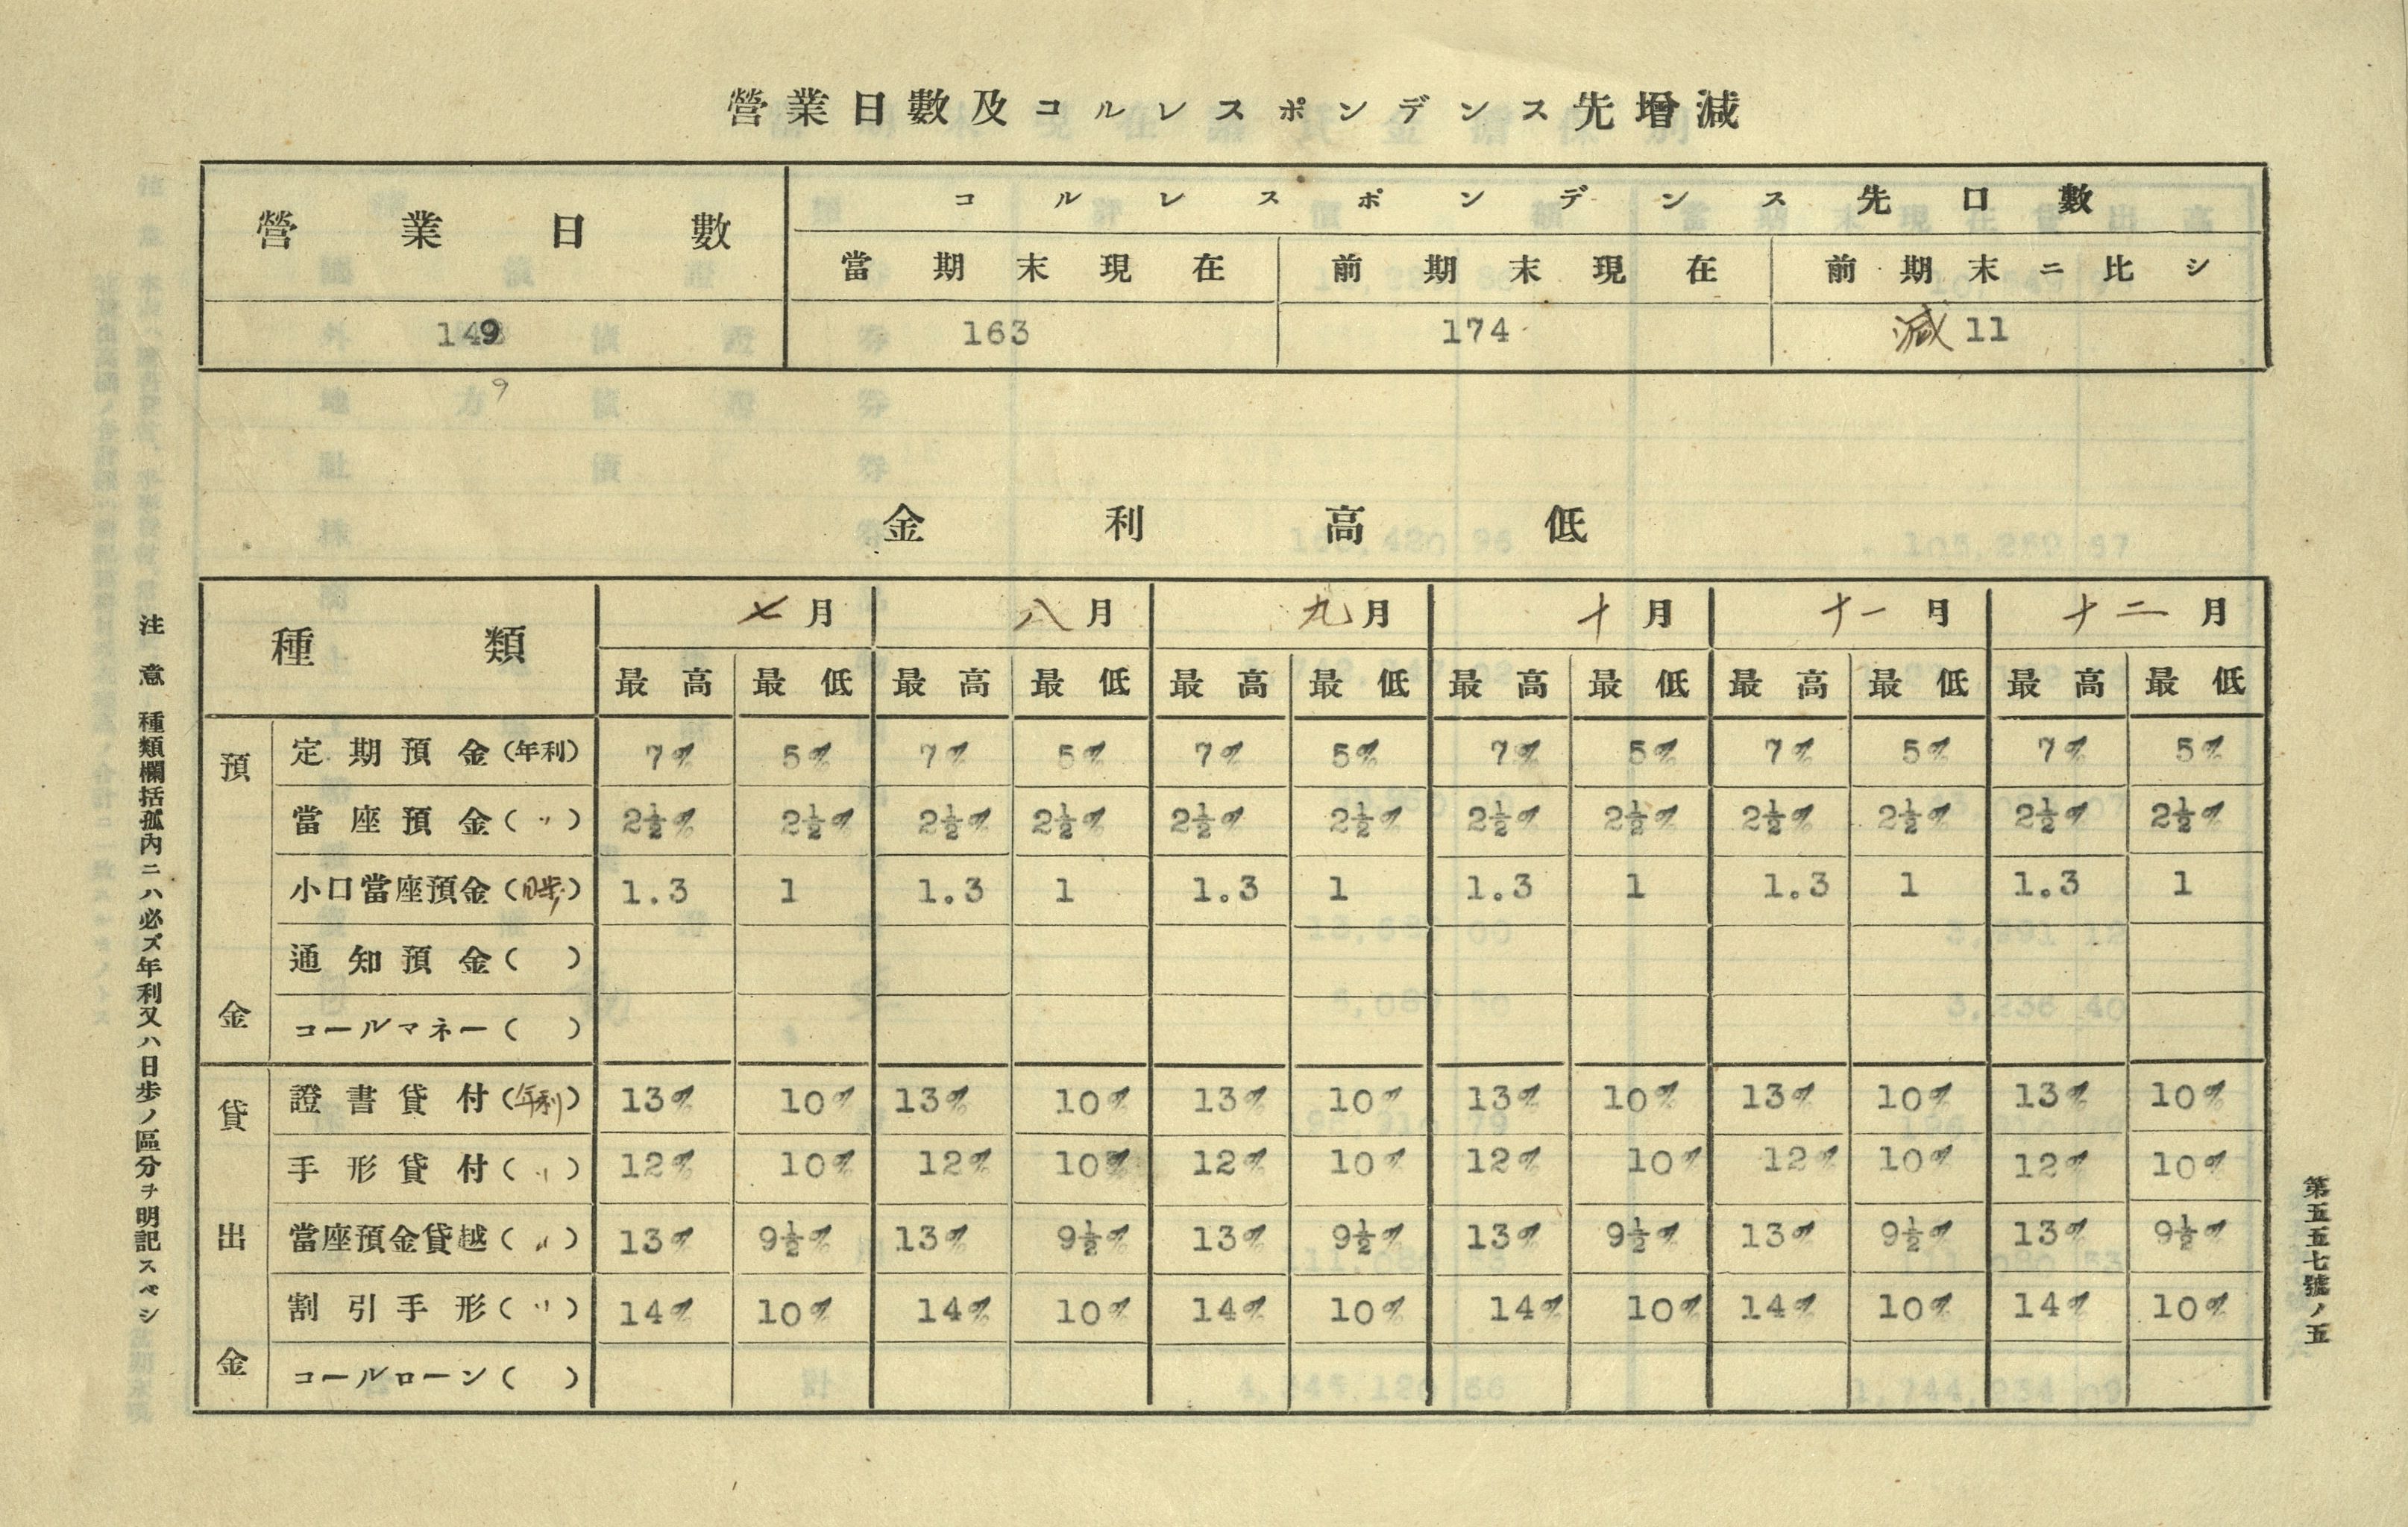 營業日數及コルレスポンデンス先增減
營業日數 コルレスポンデンス先口數
當期末現在 前期末現在 前期末ニ比シ
149 163 174 減11
9
金利高低
種類 七月 八月 九月 十月 十一月 十二月
最高 最低 最高 最低 最高 最低 最高 最低 最高 最低 最高 最低
預金
定期預金(年利) 7% 5% 7% 5% 7% 5% 7% 5% 7% 5% 7% 5%
當座預金(〃) 2½% 2½% 2½% 2½% 2½% 2½% 2½% 2½% 2½% 2½% 2½% 2½%
小口當座預金(日歩) 1.3 1 1.3 1 1.3 1 1.3 1 1.3 1 1.3 1
通知預金( )
コールマネー( )
貸出金
證書貸付(年利) 13% 10% 13% 10% 13% 10% 13% 10% 13% 10% 13% 10%
手形貸付(〃) 12% 10% 12% 10% 12% 10% 12% 10% 12% 10% 12% 10%
當座預金貸越(〃) 13% 9½% 13% 9½% 13% 9½% 13% 9½% 13% 9½% 13% 9½%
割引手形(〃) 14% 10% 14% 10% 14% 10% 14% 10% 14% 10% 14% 10%
コールローン( )
注意 種類欄括孤內ニハ必ズ年利又ハ日歩ノ區分ヲ明記スベシ
第五五七號ノ五